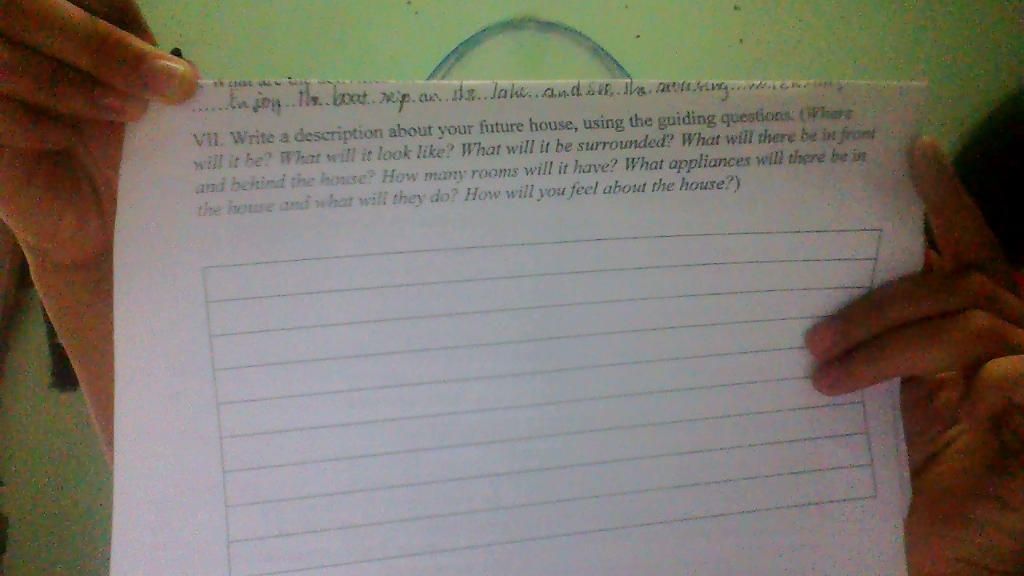 enjoy the boat on the lake and see the
VII. Write a description about your future house, using the guiding questions. (Where
will it be? What will it look like? What will it be surrounded? What will there be in front
and behind the house? How many rooms will it have? What appliances will there be in
the house and what will they do? How will you feel about the house?)